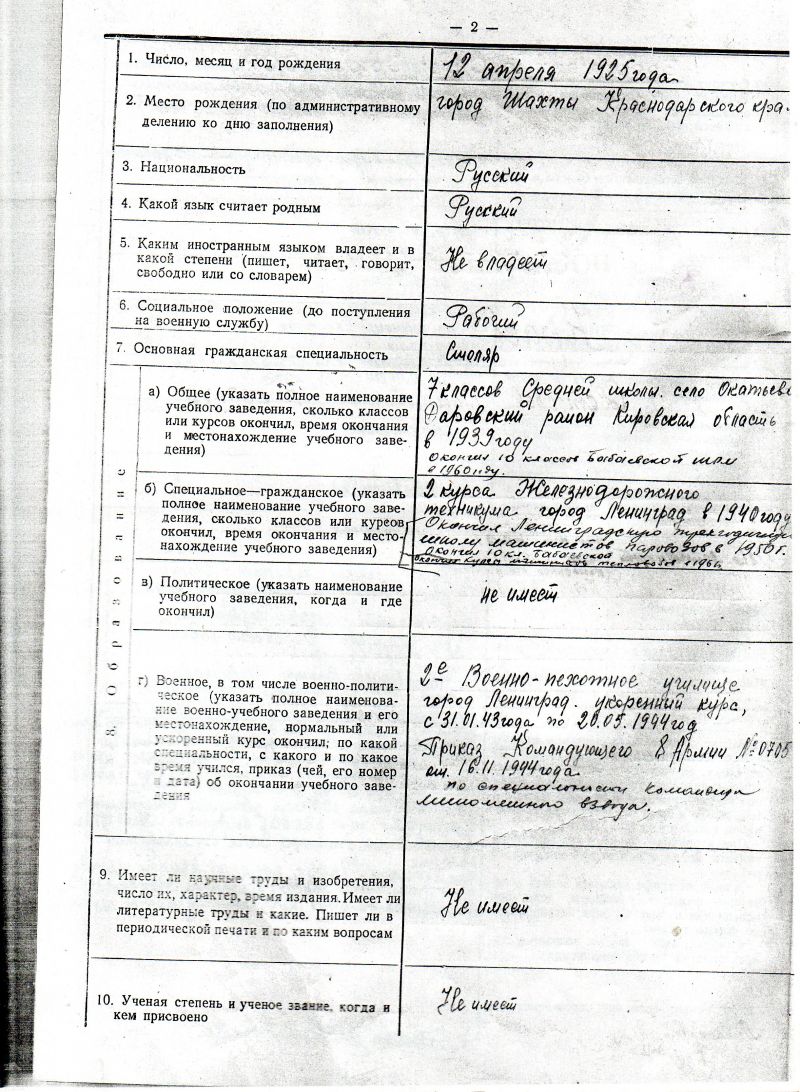 — 2 —
1. Число, месяц и год рождения
12 апреля 1925 года
2. Место рождения (по административному
делению ко дню заполнения)
город Шахты Краснодарского кра-
3. Национальность
Русский
4. Какой язык считает родным
Русский
5. Каким иностранным языком владеет и в
какой степени (пишет, читает, говорит,
свободно или со словарем)
Не владеет
6. Социальное положение (до поступления
на военную службу)
Рабочий
7. Основная гражданская специальность
Столяр
8. Образование
а) Общее (указать полное наименование
учебного заведения, сколько классов
или курсов окончил, время окончания
и местонахождение учебного заве-
дения)
7 классов Средней школы. село Окатьево
Даровский район Кировская область
в 1939 году
Окончил 10 классов Бабаевской шрм
в 1960 году.
б) Специальное—гражданское (указать
полное наименование учебного заве-
дения, сколько классов или курсов
окончил, время окончания и место-
нахождение учебного заведения)
2 курса Железнодорожного
техникума город Ленинград в 1940 году
Окончил Ленинградскую трехгодичную
школу машинистов паровозов в 1950 г.
Окончил 10 кл. Бабаевской
окончил курсы машинистов тепловозов в 196
в) Политическое (указать наименование
учебного заведения, когда и где
окончил)
не имеет
г) Военное, в том числе военно-полити-
ческое (указать полное наименова-
ние военно-учебного заведения и его
местонахождение, нормальный или
ускоренный курс окончил, по какой
специальности, с какого и по какое
время учился, приказ (чей, его номер
и дата) об окончании учебного заве-
дения
2е Военно-пехотное училище
город Ленинград. укоренный курс,
с 31.01.43 года по 20.05.1944 год
Приказ Командующего 8 Армии № 0705
от 16.11.1944 года.
по специальности командира
минометного взвода.
9. Имеет ли научные труды и изобретения,
число их, характер, время издания. Имеет ли
литературные труды и какие. Пишет ли в
периодической печати и по каким вопросам
Не имеет
10. Ученая степень и ученое звание, когда и
кем присвоено
Не имеет